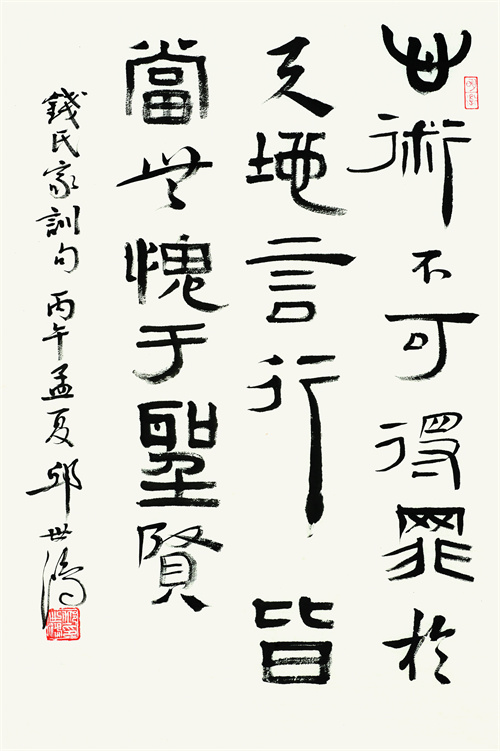 心術不可得罪於
天地言行皆
當无愧于聖賢
錢氏家訓句 丙午孟夏 邱世鴻